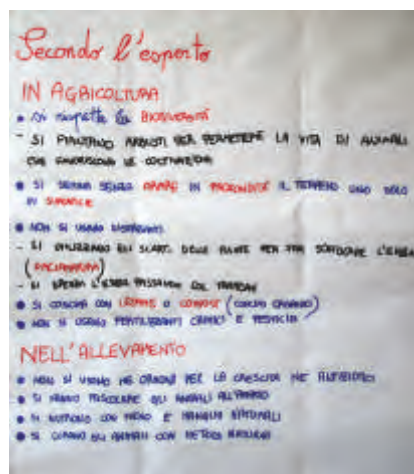 Secondo l'esperto
IN AGRICOLTURA
• Si rispetta la BIODIVERSITÀ
- SI PIANTANO ARBUSTI PER PERMETTERE LA VITA DI ANIMALI
CHE FAVORISCONO LE COLTIVAZIONI
• SI SEMINA SENZA ARARE IN PROFONDITÀ IL TERRENO MA SOLO
IN SUPERFICE
• NON SI USANO DISERBANTI
- SI UTILIZZANO GLI SCARTI DELLE PIANTE PER L'ERBA
(PACCIAMATURA)
- SI L'ERBA PASSANDO COL TRATTORE
• SI CONCIMA CON LETAME O COMPOST (CONCIMI ORGANICI)
• NON SI USANO FERTILIZZANTI CHIMICI E PESTICIDI
NELL'ALLEVAMENTO
• NON SI USANO NE ORMONI PER LA CRESCITA NE ANTIBIOTICI
• SI FANNO PASCOLARE GLI ANIMALI ALL'APERTO
• SI NUTRONO CON FIENO E MANGIMI NATURALI
• SI CURANO GLI ANIMALI CON METODI NATURALI